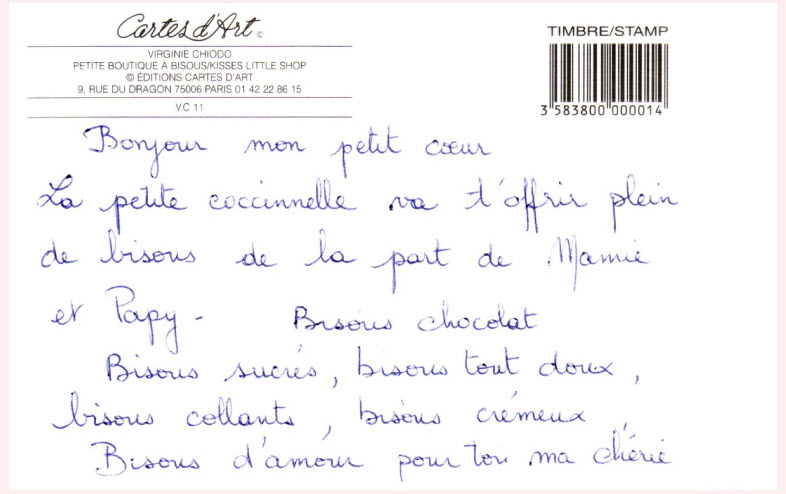 Cartes d'Art ©
VIRGINIE CHIODO
PETITE BOUTIQUE À BISOUS/KISSES LITTLE SHOP
© ÉDITIONS CARTES D'ART
9, RUE DU DRAGON 75006 PARIS 01 42 22 86 15
V.C 11
TIMBRE/STAMP
3 583800 000014
Bonjour mon petit cœur
La petite coccinnelle va t'offrir plein
de bisous de la part de Mamie
et Papy - Bisous chocolat
Bisous sucrés, bisous tout doux,
bisous collants, bisous crémeux,
Bisous d'amour pour toi ma chérie